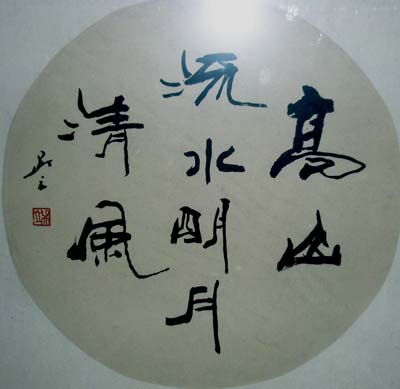 高山
流水明月
清风